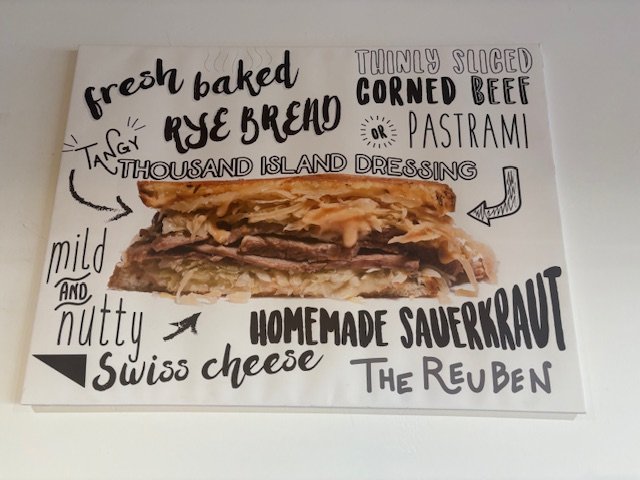 fresh baked
RYE BREAD
THINLY SLICED
CORNED BEEF
OR PASTRAMI
TANGY
THOUSAND ISLAND DRESSING
mild
AND
nutty
Swiss cheese
HOMEMADE SAUERKRAUT
THE REUBEN